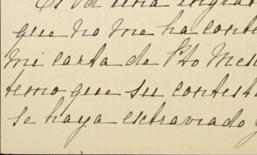 Es ya una
que no me ha contes
mi carta de Pto Mes
temo que su contest
se haya extraviado y